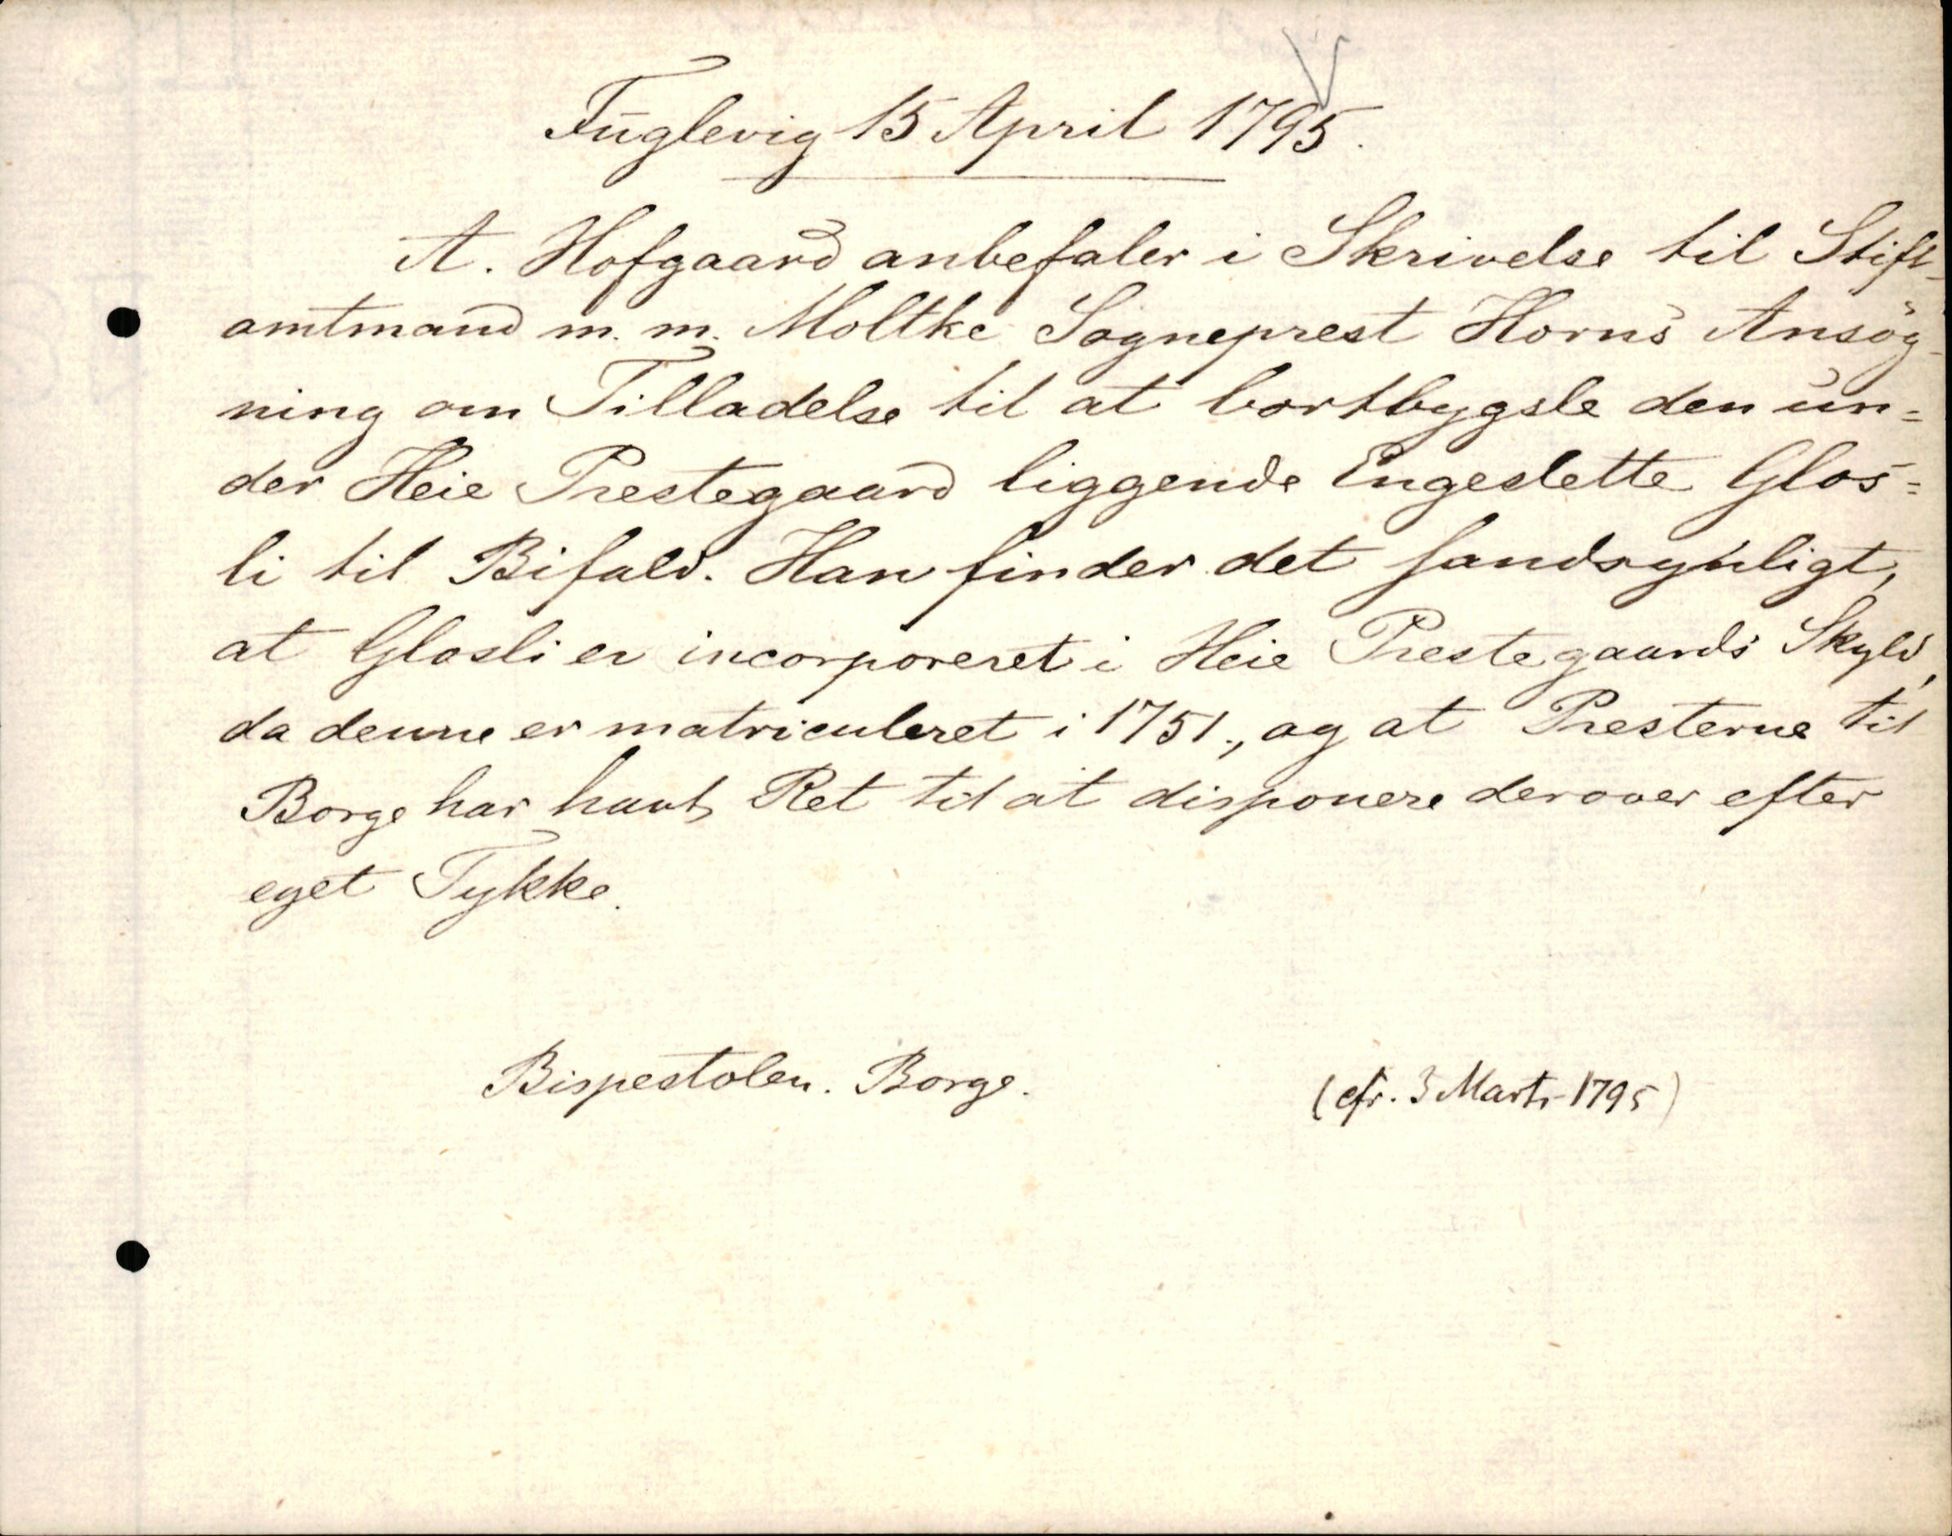 Fuglevig 15 April 1795.
A. Hofgaard anbefaler i Skrivelse til Stift-
amtmand m. m. Moltke Sogneprest Horns Ansøg-
ning om Tilladelse til at bortbygsle den un=
der Heie Prestegaard liggende Engeslette Glos=
li til Bifald. Han finder det sandsynligt,
at Glosli er incorporeret i Heie Prestegaards Skyld,
da denne er matriculeret i 1 7 5 1., og at Presterne til
Borge har havt Ret til at disponere derover efter
eget Tykke.
Bispestolen. Borge.
(cfr. 3 Marts 1795)